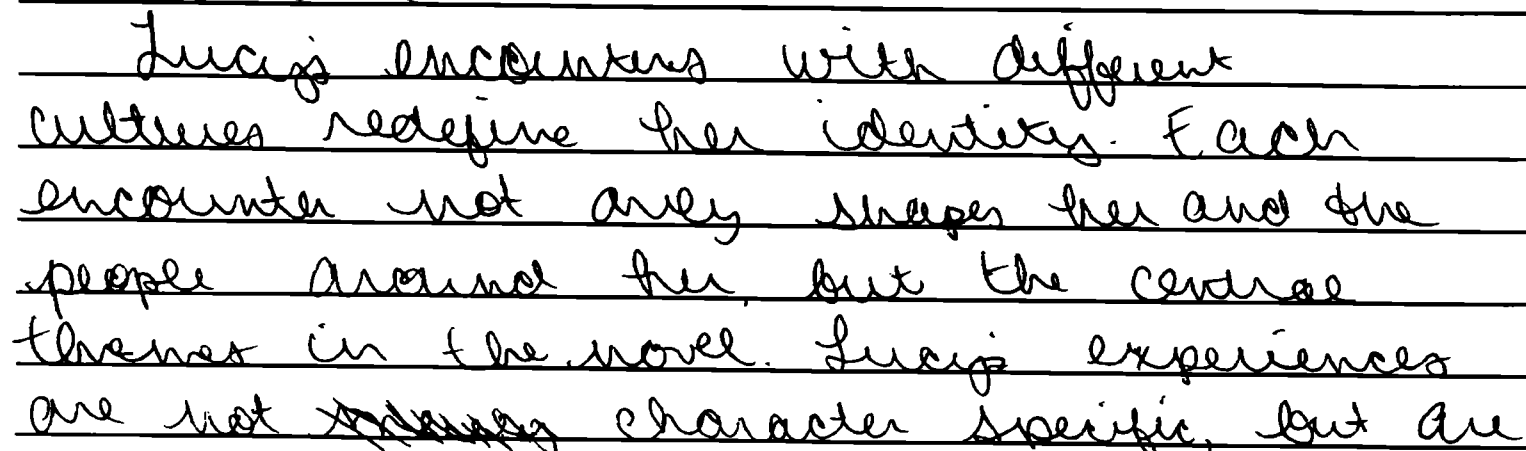 Lucy's encounters with different
cultures redefine her identity. Each
encounter not only shapes her and the
people around her, but the central
themes in the novel. Lucy's experiences
are not character specific, but are